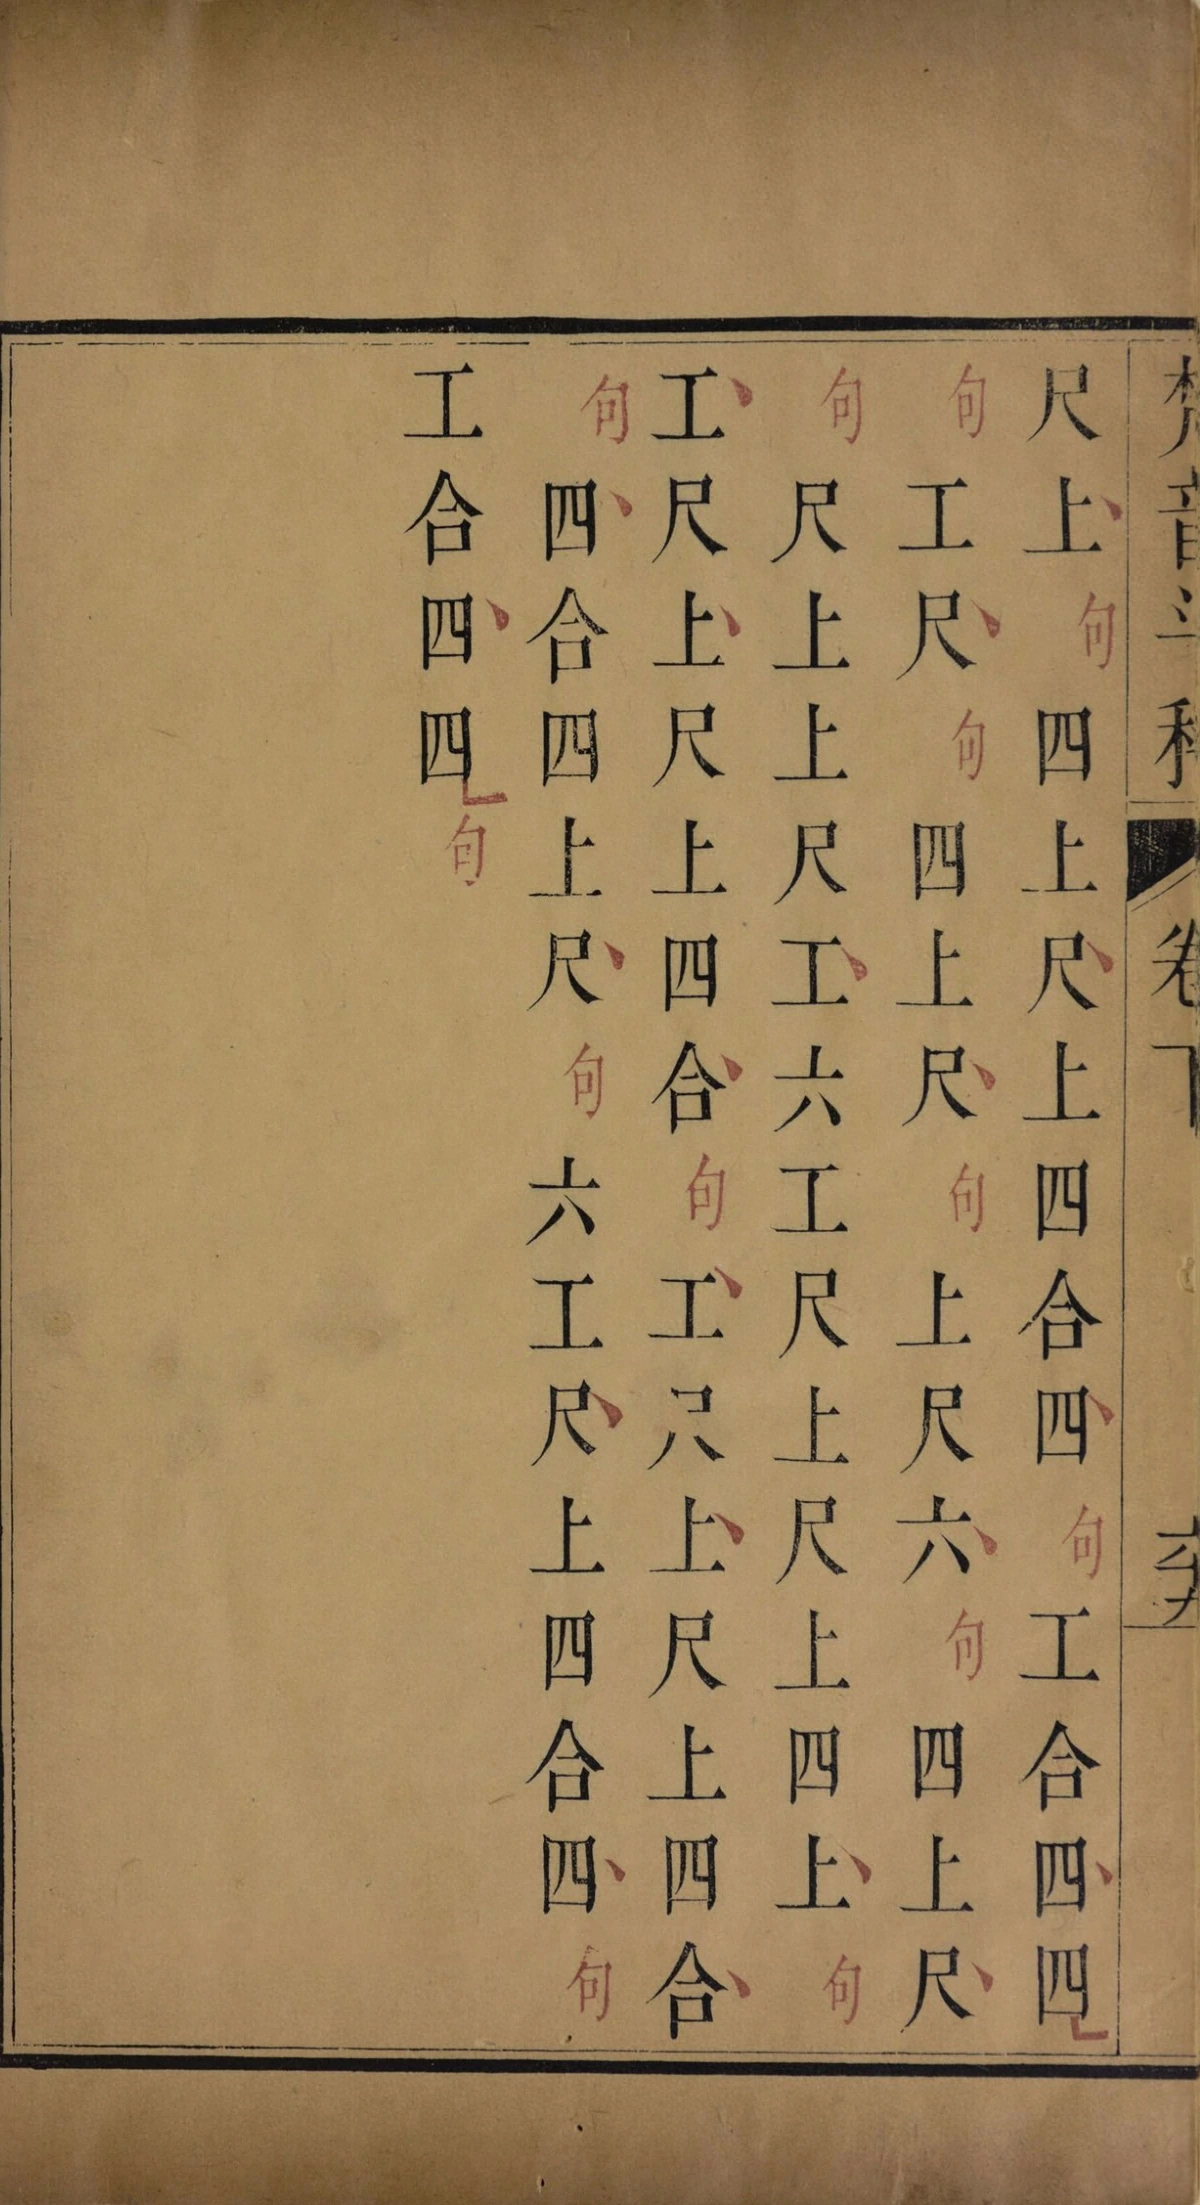 梵音斗科 卷下 六十九
尺上句四上尺上四合四句工合四四
句工尺句四上尺句上尺六句四上尺
句尺上上尺工六工尺上尺上四上句
工尺上尺上四合句工尺上尺上四合
句四合四上尺句六工尺上四合四句
工合四四句